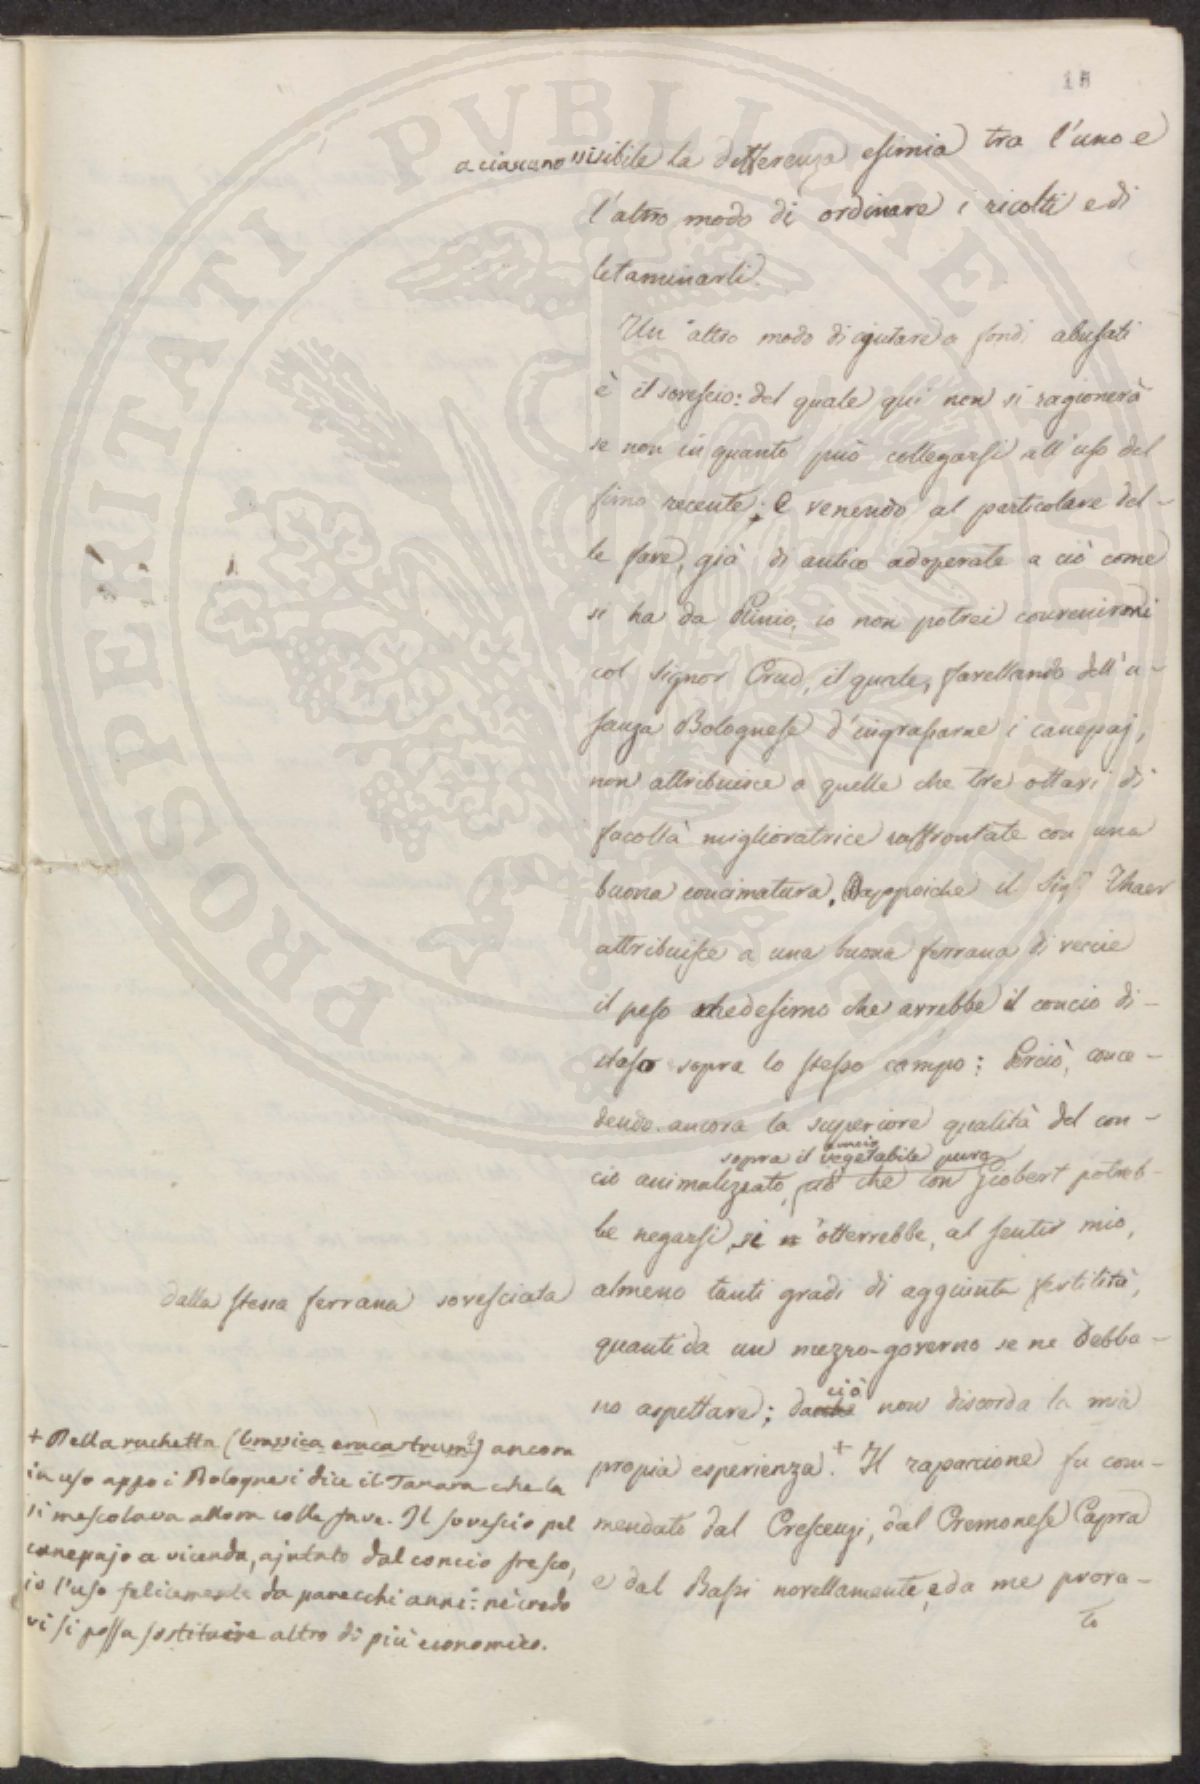 15
a ciascuno visibile la differenza esimia tra l'uno e
l'altro modo di ordinare i ricolti e di
letaminarli.
Un altro modo di ajutare a fondi abusati
è il sovescio: del quale qui non si ragionerà
se non in quanto può collegarsi all'uso del
fimo recente; e venendo al particolare del-
le fave, già di antico adoperate a ciò come
si ha da Plinio, io non potrei convenirmi
col Signor Crud, il quale, favellando dell'u-
sanza Bolognese d'ingrassarne i canepaj,
non attribuisce a quelle che tre ottavi di
facoltà miglioratrice raffrontate con una
buona concimatura. Dappoiche il Sig.r Thaer
attribuisce a una buona ferrana di veccie
il peso medesimo che avrebbe il concio di-
steso sopra lo stesso campo: Perciò, conce-
dendo ancora la superiore qualità del con-
concio
sopra il vegetabile puro
cio animalizzato, ciò che con Giobert potreb-
be negarsi, si n'otterrebbe, al sentir mio,
dalla stessa ferrana sovesciata
almeno tanti gradi di aggiunta fertilità,
quanti da un mezzo-governo se ne debba-
ciò
no aspettare; da che non discorda la mia
propia esperienza.+ Il rapaccione fu com-
mendato dal Crescenzi, dal Cremonese Capra
e dal Bassi novellamente, e da me prova-
to
+ Della ruchetta (brassica erucastrum?) ancora
in uso appo i Bolognesi dice il Tanara che la
si mescolava allora colle fave. Il sovescio pel
canepajo a vicenda, ajutato dal concio fresco,
io l'uso felicemente da parecchi anni: nè credo
vi si possa sostituire altro di più economico.
PROSPERITATI PVBLICAE